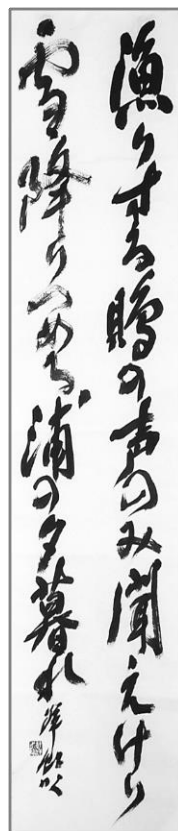 漁りする鴎の声のみ聞えけり
雪降りつめる浦の夕暮れ